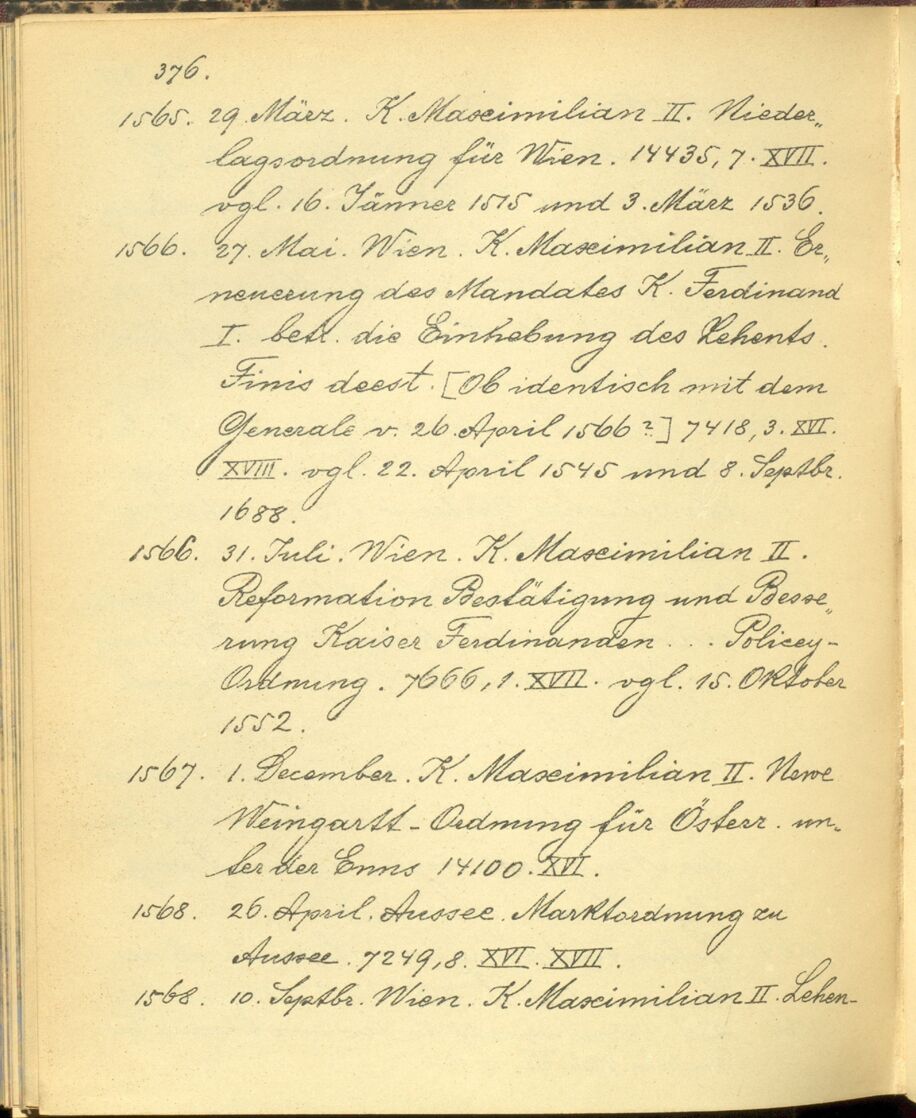 376.
1565. 29. März. K. Maximilian II. Nieder„
lagsordnung für Wien. 14435, 7. XVII.
vgl. 16. Jänner 1515 und 3. März 1536.
1566. 27. Mai. Wien. K. Maximilian II. Er„
neuerung des Mandates K. Ferdinand
I. betr. die Einhebung des Zehents.
Finis deest. [Ob identisch mit dem
Generale v. 26. April 1566?] 7418, 3. XVI.
XVIII. vgl. 22. April 1545 und 8. Septbr.
1688.
1566. 31. Juli. Wien. K. Maximilian II.
Reformation Bestätigung und Besse„
rung Kaiser Ferdinanden ... Policey-
Ordnung. 7666, 1. XVII. vgl. 15. Oktober
1552.
1567. 1. December. K. Maximilian II. Newe
Weingartt-Ordnung für Österr. un-
ter der Enns 14100. XVI.
1568. 26. April. Aussee. Marktordnung zu
Aussee. 7249, 8. XVI. XVII.
1568. 10. Septbr. Wien. K. Maximilian II. Lehen-